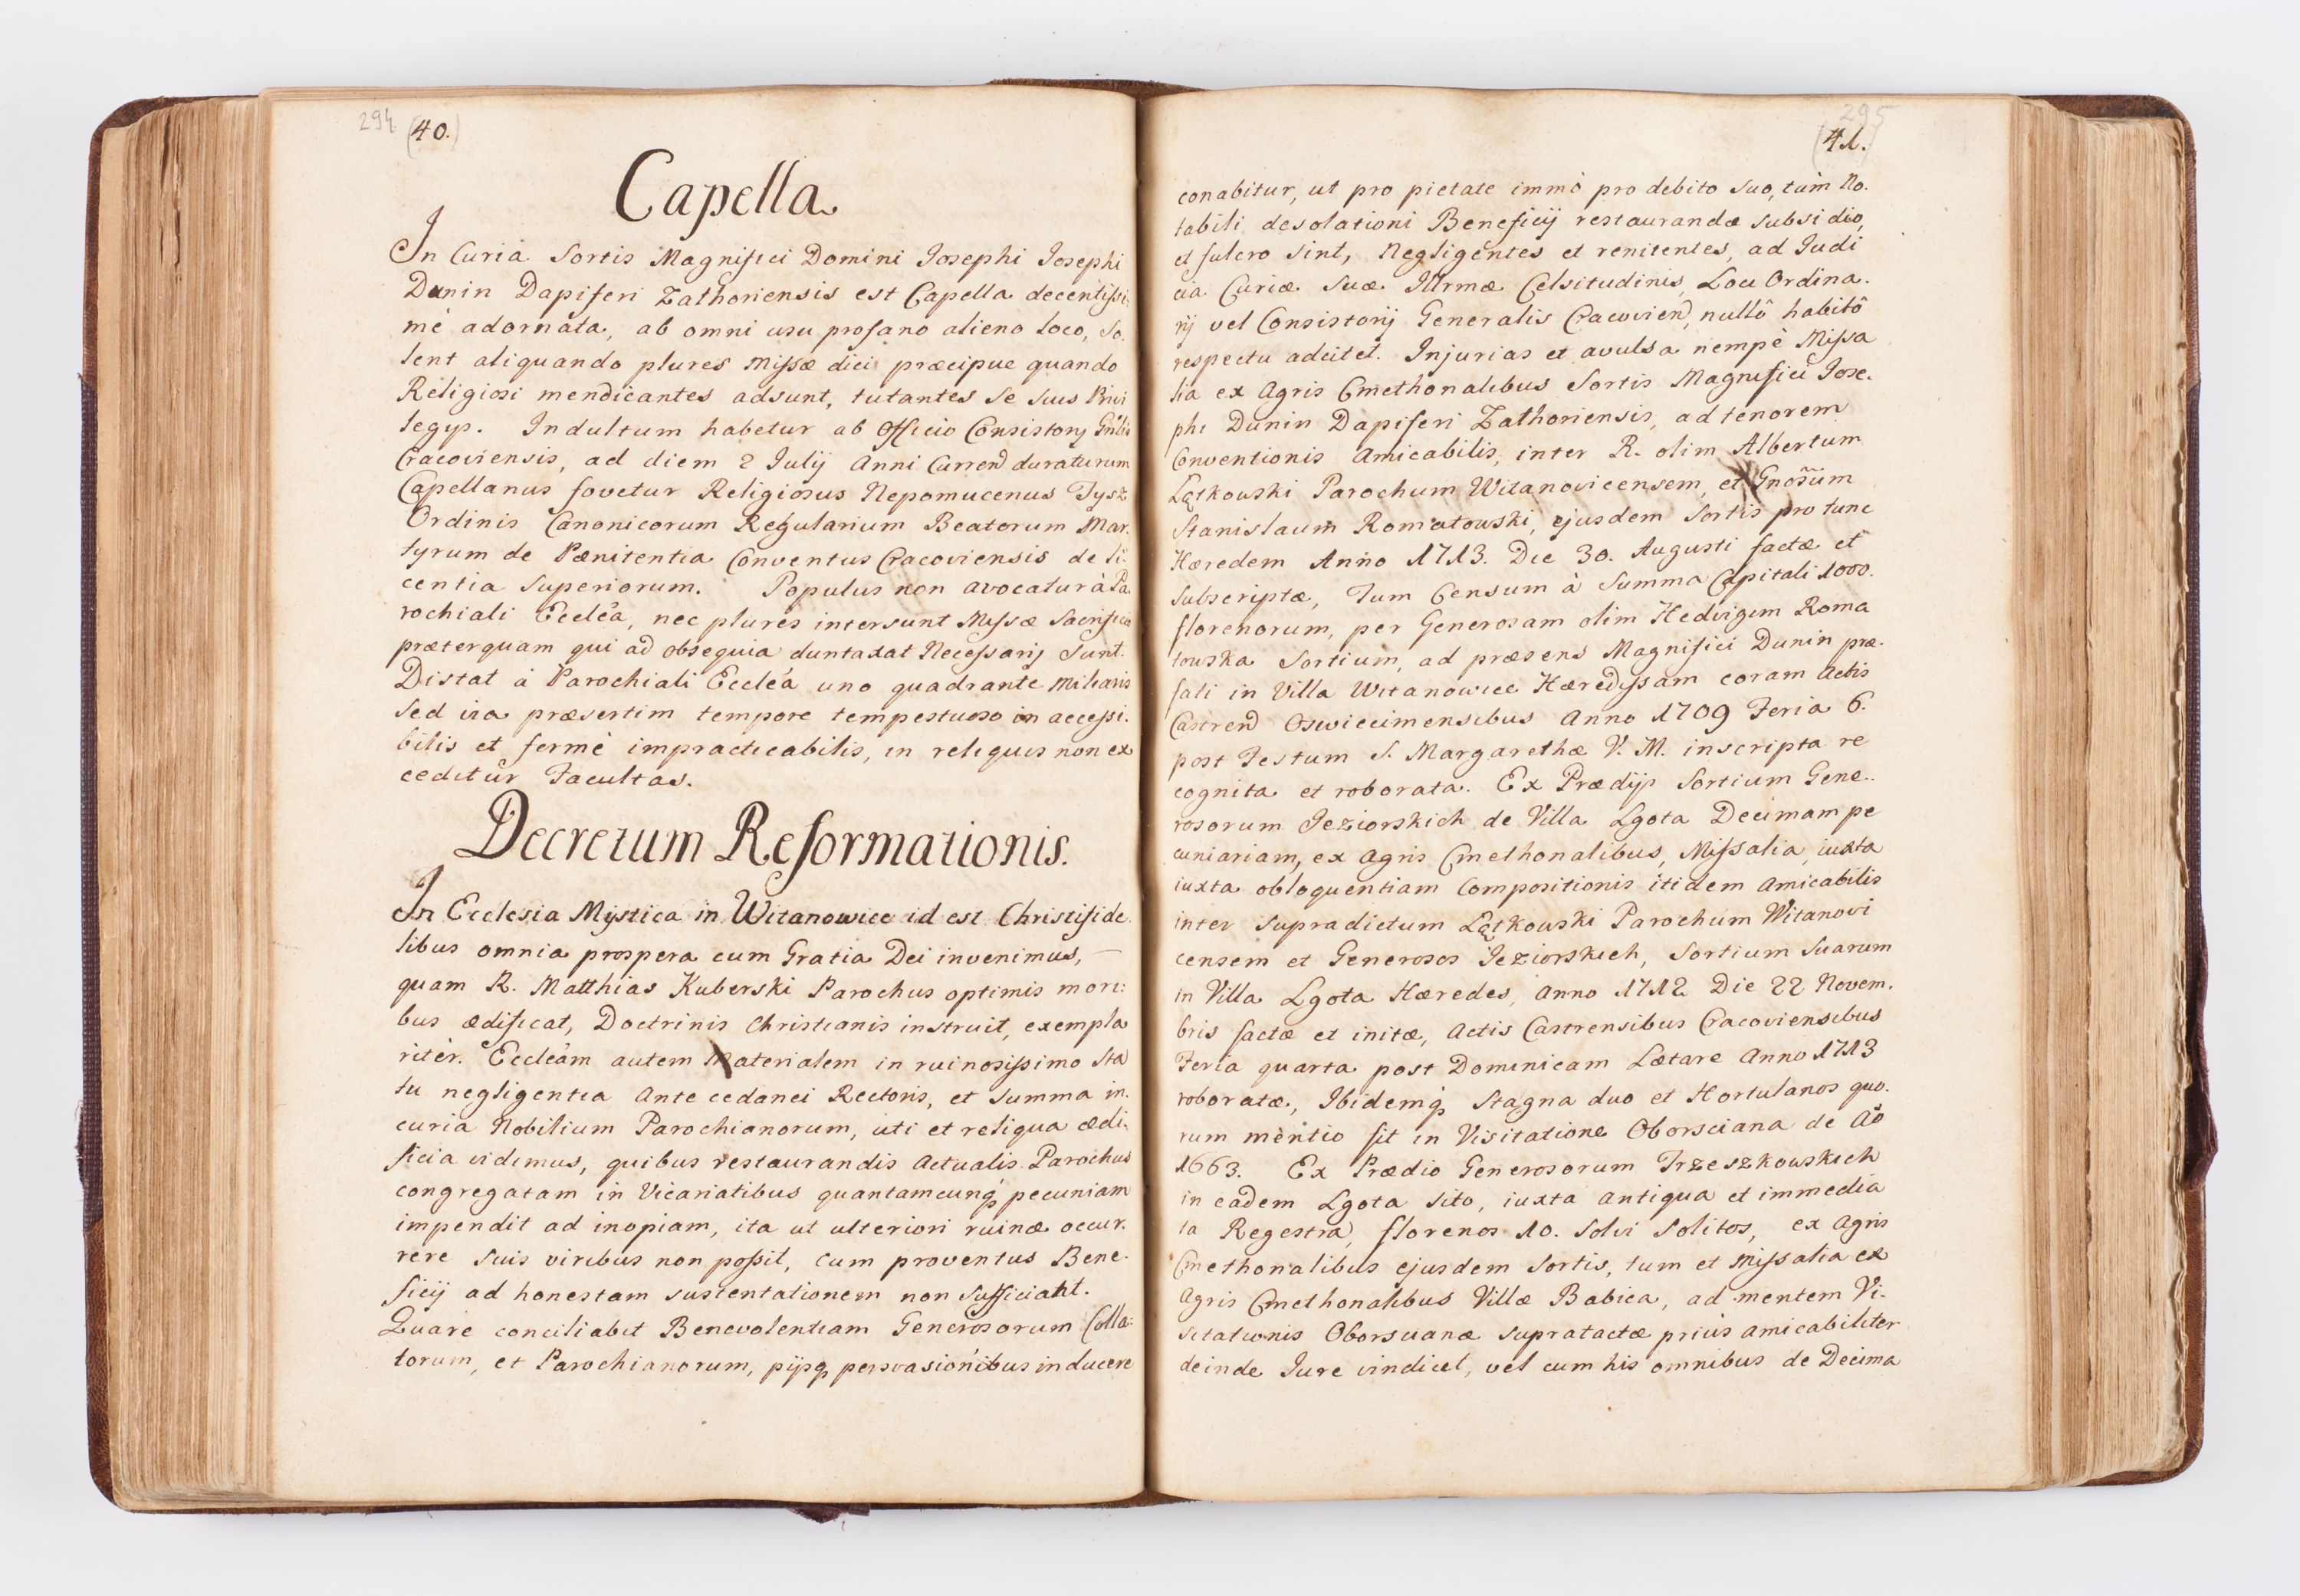 294 (40.)
Capella.
In Curia Sortis Magnifici Domini Josephi Josephi
Dunin Dapiferi Zathoriensis est Capella decentissi.
mè adornata, ab omni usu profano alieno loco, So.
lent aliquando plures Missæ dici præcipue quando
Religiosi mendicantes adsunt, tutantes se suis Privi
legys. Indultum habetur ab Officio Consistorij Gn̄lis
Cracoviensis, ad diem 2 Julij Anni Curren̄ duraturum
Capellanus fovetur Religiosus Nepomucenus Tysz
Ordinis Canonicorum Regularium Beatorum Mar.
tyrum de Pænitentia Conventus Cracoviensis de li.
centia Superiorum. Populus non avocatur à Pa
rochiali Eccleã, nec plures intersunt Missæ Sacrificio
præterquam qui ad obsequia duntaxat Necessarij Sunt.
Distat à Parochiali Eccleã uno quadrante Miliaris
sed via præsertim tempore tempestuoso in accessi.
bilis et fermè impracticabilis, in reliquis non ex
ceditur Facultas.
Decretum Reformationis.
In Ecclesia Mystica in Witanowice id est Christifide
libus omnia prospera cum Gratia Dei invenimus, —
quam R. Matthias Kuberski Parochus optimis mori:
bus ædificat, Doctrinis Christianis instruit, exempla
ritèr. Eccleãm autem Materialem in ruinosissimo Sta
tu negligentia Ante cedanei Rectoris, et Summa in.
curia Nobilium Parochianorum, uti et reliqua ædi.
ficia vidimus, quibus restaurandis Actualis Parochus
congregatam in Vicariatibus quantamcunq́ pecuniam
impendit ad inopiam, ita ut ulteriori ruinæ occur.
rere suis viribus non possit, cum proventus Bene.
ficij ad honestam sustentationem non Sufficiant.
Quare conciliabit Benevolentiam Generosorum Colla=
torum, et Parochianorum, pijsq persvasionibus inducere
295
(41.)
conabitur, ut pro pietate immò pro debito Suo, tùm No.
tabili desolationi Beneficij restaurandæ subsidio,
et fulcro sint, Negligentes et renitentes, ad Judi
cia Curiæ Suæ Illrmæ Celsitudinis, Loci Ordina.
rij vel Consistorij Generalis Cracovien̄, nullô habitô
respectu adcitet. Injurias et avulsa nempè Missa
lia ex Agris Cmethonalibus Sortis Magnifici Jose.
phi Dunin Dapiferi Zathoriensis, ad tenorem
Conventionis Amicabilis, inter R. olim Albertum
Łątkowski Parochum Witanovicensem, et Gnosum̃
Stanislaum Romatowski, ejusdem Sortis pro tunc
Hæredem Anno 1713. Die 30. Augusti factæ et
Subscriptæ, Tum Censum à Summa Capitali 1000.
florenorum, per Generosam olim Hedvigim Roma
towska Sortium, ad præsens Magnifici Dunin præ.
fati in Villa Witanowice Hæredissam coram Actis
Castren̄ Oswiecimensibus Anno 1709 Feria 6.
post Festum S. Margarethæ V. M. inscripta re
cognita et roborata. Ex Prædijs Sortium Gene..
rosorum Jeziorskich de Villa Lgota Decimam pe
cuniariam, ex Agris Cmethonalibus, Missalia, iuxta
iuxta obloquentiam Compositionis itidem Amicabilis
inter Supradictum Łątkowski Parochum Witanovi
censem et Generosos Jeziorskich, Sortium Suarum
in Villa Lgota Hæredes, Anno 1712 Die 22 Novem.
bris factæ et initæ, Actis Castrensibus Cracoviensibus
Feria quarta post Dominicam Lætare Anno 1713
roboratæ, Ibidemq́ Stagna duo et Hortulanos quo.
rum mèntio fit in Visitatione Oborsciana de Aõ
1663. Ex Prædio Generosorum Trzeszkowskich
in eãdem Lgota Sito, iuxta antiqua et immedia
ta Regestra, florenos 10. Solvi Solitos, ex Agris
Cmethonalibus ejusdem Sortis, tum et Missalia ex
Agris Cmethonalibus Villæ Babica, ad mentem Vi.
sitationis Oborscianæ supratactæ priùs Amicabiliter
deinde Jure vindicet, vel cum his omnibus de Decima